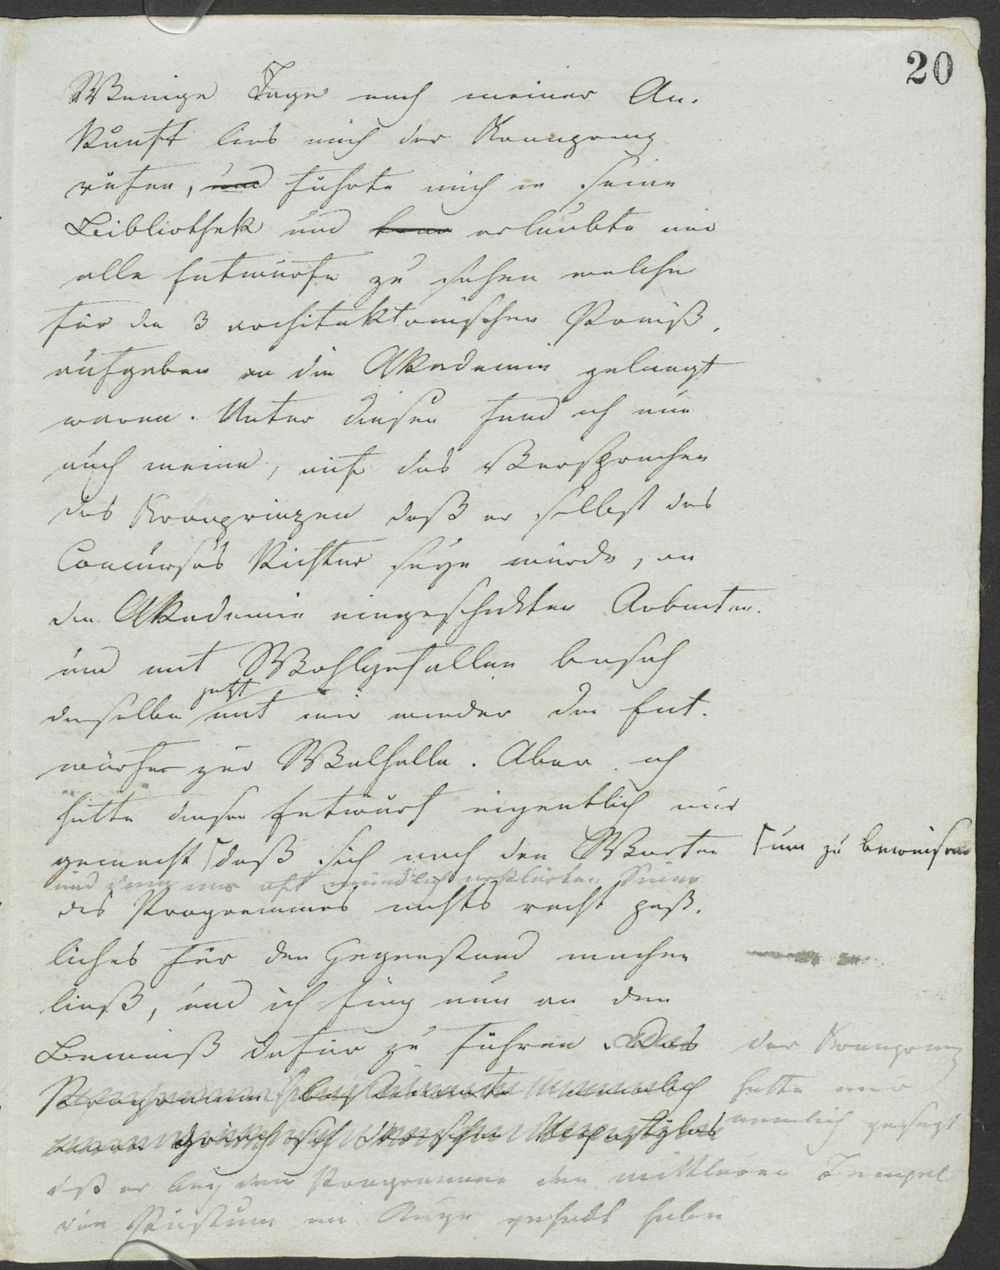 20
Wenige Tage nach meiner An-
kunft lies mich der Kronprinz
rufen, und führte mich in seine
Bibliothek und erlaubte mir
alle Entwürfe zu sehen welche
für die 3 architektonischen Preiß-
aufgaben an die Akademie gelangt
waren. Unter diesen fand ich nun
auch meine, auf das Versprechen
des Kronprinzen daß er selbst des
Concurses Richter seyn würde, an
die Akademie eingeschickten Arbeiten.
und mit Wohlgefallen besah
derselbe jetzt mit mir wieder die Ent-
würfe zur Walhalla. Aber ich
hatte diesen Entwurf eigentlich nur
gemacht ⌈ daß sich nach den Worten ⌈ um zu beweisen
und dem mir oft mündlich erklärten Sinne
des Programmes nichts recht paß-
liches für den Gegenstand machen
ließ, und ich fing nun an den
Beweiß dafür zu führen. Das der Kronprinz
Programm hatte mir
griechisch dorischen Hypostylos nemlich gesagt
daß er bey dem Programme den mittleren Tempel
von Pästum im Auge gehabt habe